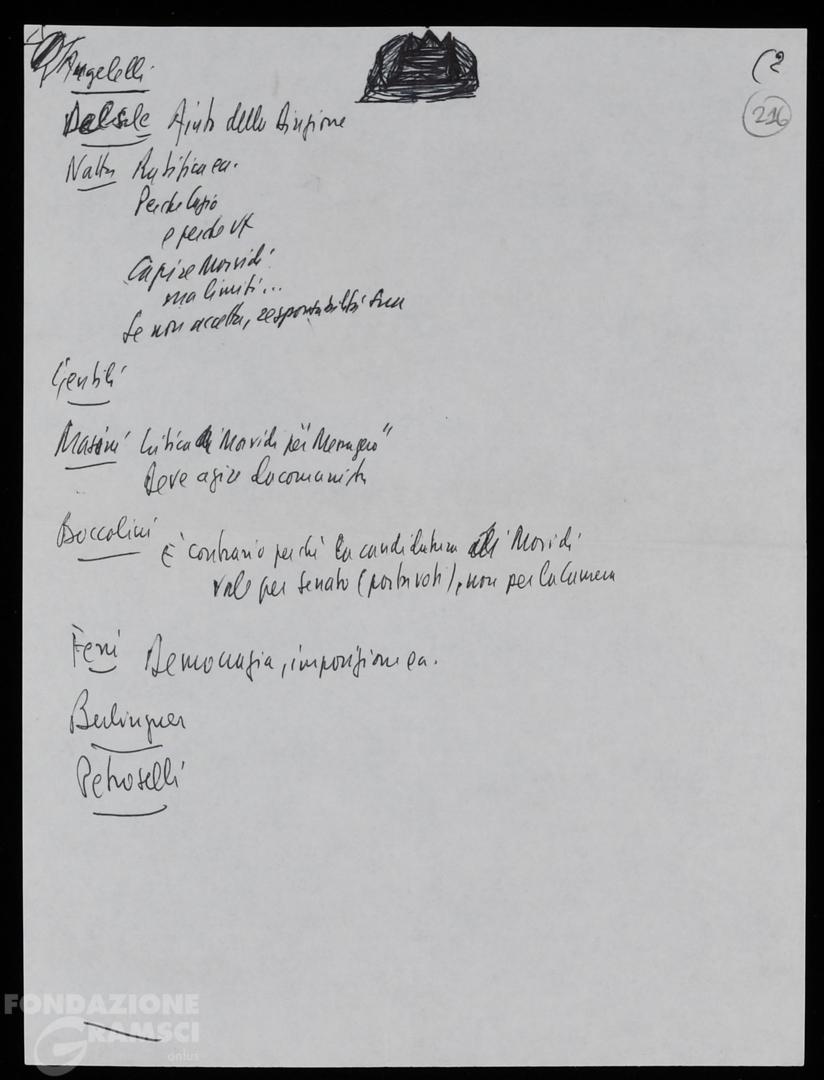 Angelelli
(2
216
Delsole Aiuto della Direzione
Natta Ratifica ca.
Perché Capio
e perché VT
Capire Morvidi
ma limiti...
Se non accetta, responsabilità sua
Gentili
Masini Critica di Morvidi per "Messaggero"
Deve agire da comunista
Boccolini
E' contrario perché la candidatura di Morvidi
vale per Senato (porta voti), non per la Camera
Ferri Democrazia, imposizione ca.
Berlinguer
Petroselli
FONDAZIONE
GRAMSCI
onlus